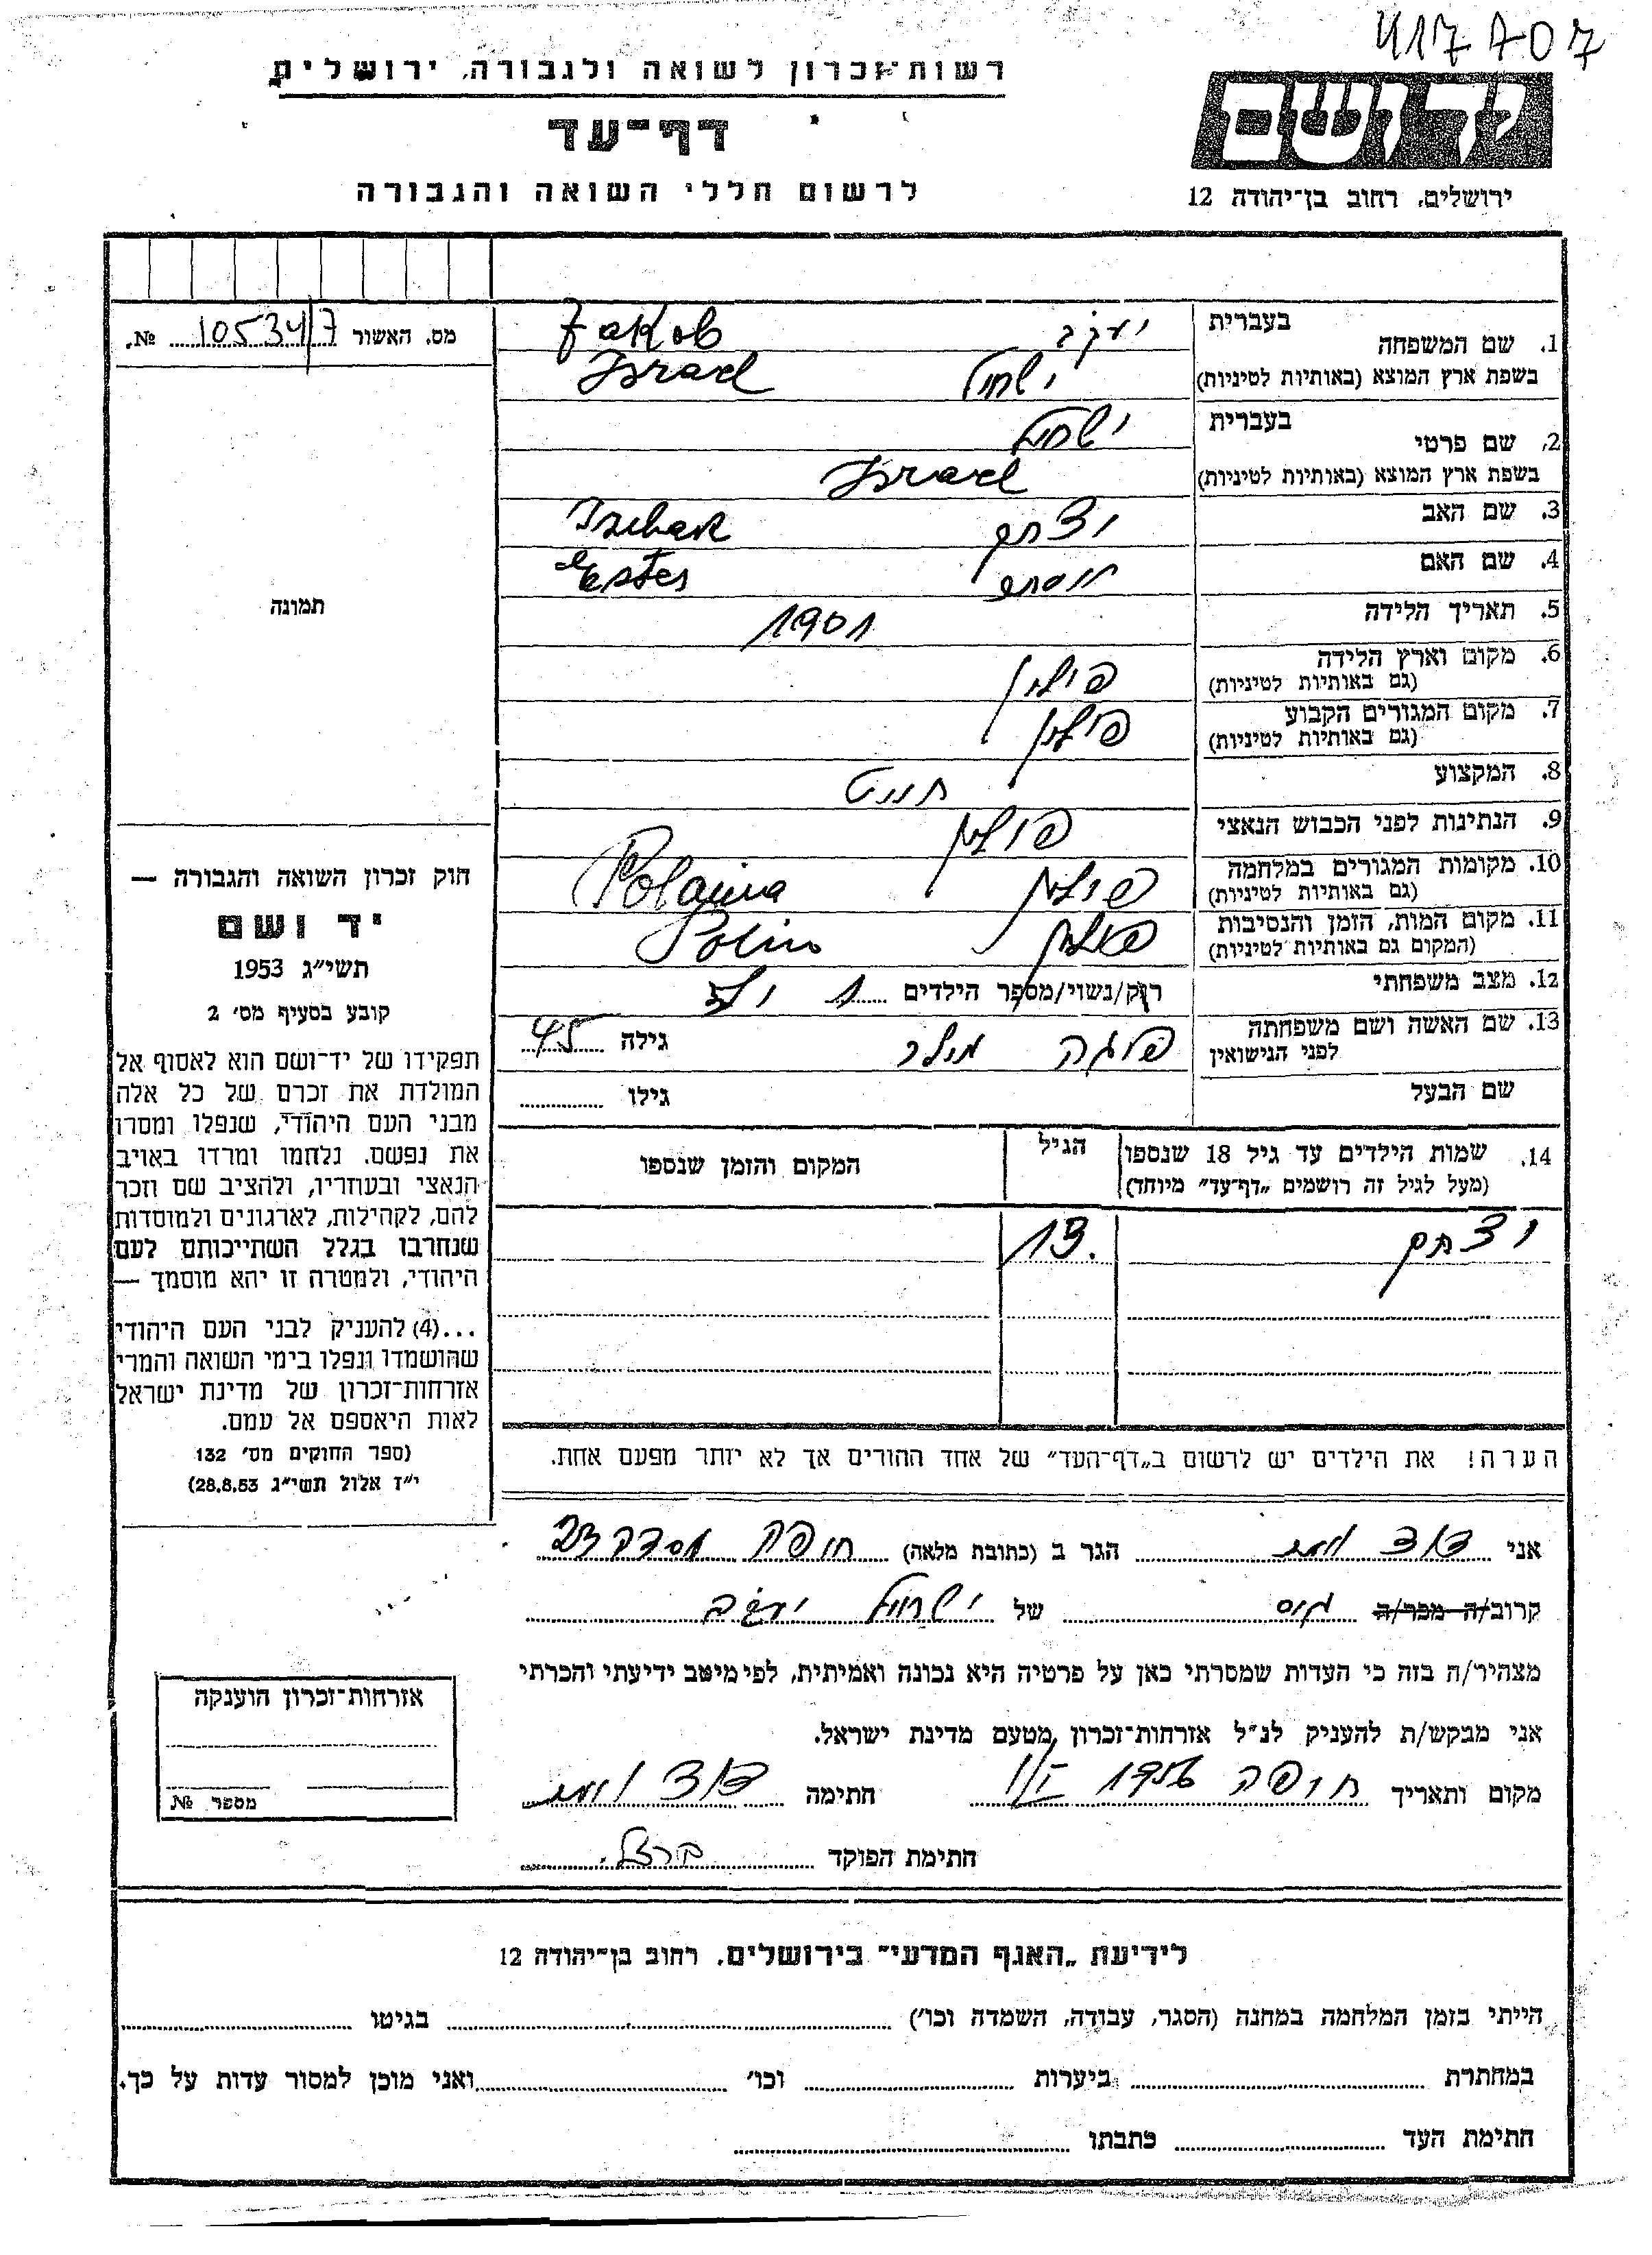 417707
רשות־זכרון לשואה ולגבורה, ירושלים
דף־עד
לרשום חללי השואה והגבורה
ירושלים, רחוב בן־יהודה 12
מס. האשור 105341/7 №.
1. שם המשפחה
בעברית יעקב Jakob
בשפת ארץ המוצא (באותיות לטיניות) ישראל Israel
2. שם פרטי
בעברית ישראל
בשפת ארץ המוצא (באותיות לטיניות) Israel
3. שם האב יצחק
4. שם האם Ester
5. תאריך הלידה 1901
6. מקום וארץ הלידה
(גם באותיות לטיניות) פולין
7. מקום המגורים הקבוע
(גם באותיות לטיניות) פולין
8. המקצוע חייט
9. הנתינות לפני הכבוש הנאצי פולין
10. מקומות המגורים במלחמה
(גם באותיות לטיניות) פולין
11. מקום המות, הזמן והנסיבות
(המקום גם באותיות לטיניות) פולין Polin
12. מצב משפחתי רוק/נשוי/מספר הילדים 1 ילד
13. שם האשה ושם משפחתה
לפני הנישואין פייגה מילר גילה 45
שם הבעל גילו
תמונה
חוק זכרון השואה והגבורה —
יד ושם
תשי״ג 1953
קובע בסעיף מס׳ 2
תפקידו של יד־ושם הוא לאסוף אל
המולדת את זכרם של כל אלה
מבני העם היהודי, שנפלו ומסרו
את נפשם, נלחמו ומרדו באויב
הנאצי ובעוזריו, ולהציב שם וזכר
להם, לקהילות, לארגונים ולמוסדות
שנחרבו בגלל השתייכותם לעם
היהודי, ולמטרה זו יהא מוסמך —
...(4) להעניק לבני העם היהודי
שהושמדו ונפלו בימי השואה והמרי
אזרחות־זכרון של מדינת ישראל
לאות היאספם אל עמם.
(ספר החוקים מס׳ 132
י״ז אלול תשי״ג 28.8.53)
14. שמות הילדים עד גיל 18 שנספו
(מעל לגיל זה רושמים „דף־עד״ מיוחד)
הגיל
המקום והזמן שנספו
יצחק 13
הערה! את הילדים יש לרשום ב„דף־העד״ של אחד ההורים אך לא יותר מפעם אחת.
אני דוד הגר ב (כתובת מלאה) חיפה
קרוב/ה מכר/ה גיס של ישראל יעקב
מצהיר/ה בזה כי העדות שמסרתי כאן על פרטיה היא נכונה ואמיתית, לפי מיטב ידיעתי והכרתי
אני מבקש/ת להעניק לנ״ל אזרחות־זכרון מטעם מדינת ישראל.
מקום ותאריך חיפה חתימה דוד
חתימת הפוקד ברזל.
אזרחות־זכרון הוענקה
מספר №
לידיעת „האגף המדעי״ בירושלים, רחוב בן־יהודה 12
הייתי בזמן המלחמה במחנה (הסגר, עבודה, השמדה וכו׳) בגיטו
במחתרת ביערות וכו׳ ואני מוכן למסור עדות על כך.
חתימת העד כתבתו